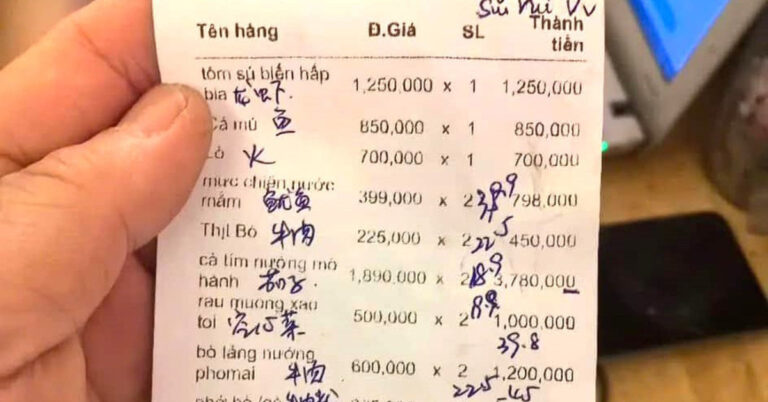 Tên hàng Đ.Giá SL Thành tiền
tôm sú biển hấp
bia 龙虾 1,250,000 x 1 1,250,000
Cá mú 鱼 850,000 x 1 850,000
Lò 火 700,000 x 1 700,000
mực chiên nước
mắm 鱿鱼 399,000 x 2 798,000
Thịt Bò 牛肉 225,000 x 2 225 450,000
cà tím nướng mỡ
hành 茄子 1,890,000 x 2 18.9 3,780,000
rau muống xào
tỏi 空心菜 500,000 x 2 1,000,000
39.8
bò lảng nướng
phomai 牛肉 600,000 x 2 1,200,000
225